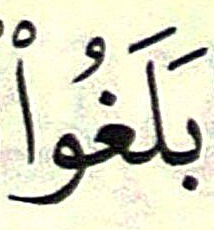 بَلَغُوا۟